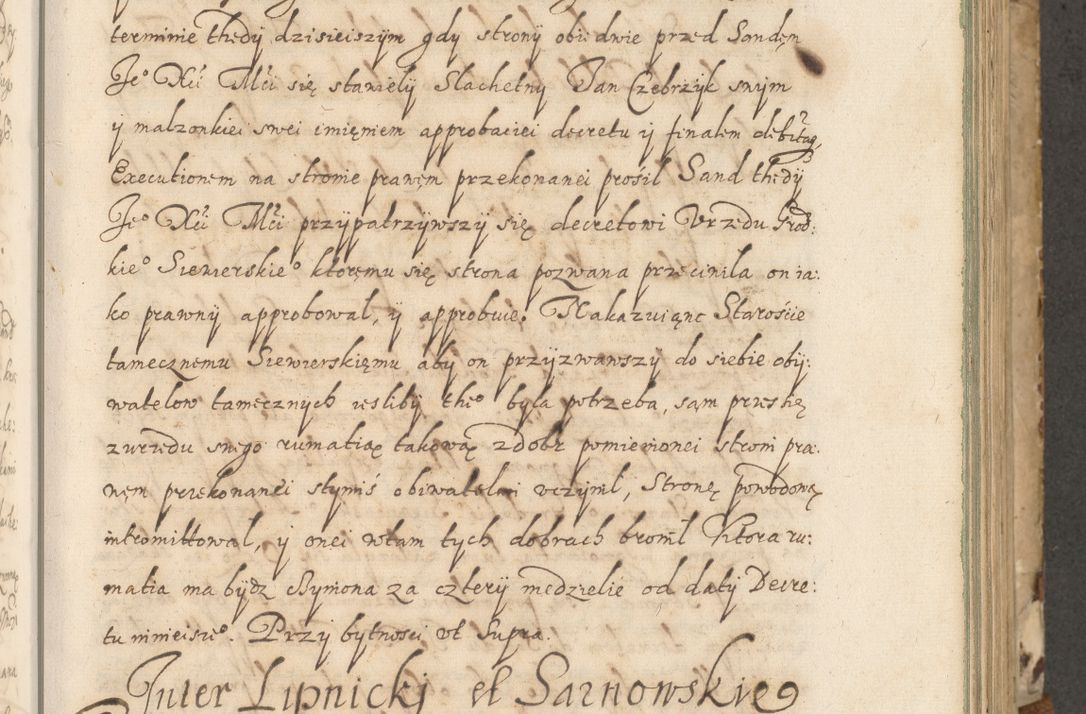 terminie thedy dzisieiszym gdy strony obiedwie przed Sandem
Je° Xci Mći się stawiely Slachetny Jan Czebrzyk swym
y malzonkiei swei imięniem approbaciei decretu ij finalem debitaq
Executionem na stronie prawem przekonanei prosil Sand thedy
Je° Xći Mći przypatrzywszy się decretowi Vrzedu Grod:
kie° Siewierskie° ktoremu się strona pozwana przecinila on ia:
ko prawny approbowal, y approbuie. Nakazuiąnc Staroście
tamecznemu Siewierskięmu aby on przyzwawszy do siebie oby:
watelow tamęcznych iesliby the° byla potrzeba, sąm przes się
z urzedu swego rumatią takową z dobr pomienionei stroni pra:
wem przekonanei stymiś obiwatelmi uczynil, Stronę powodową
intromittowal, y onei wtam tych dobrach bronil Ktora ru:
matia ma bydz czymona za cztery niedzielie od daty Decre:
tu ninieisze°. Przy bytnosci vt Supra.
Inter Lipnickj et Sarnowskie